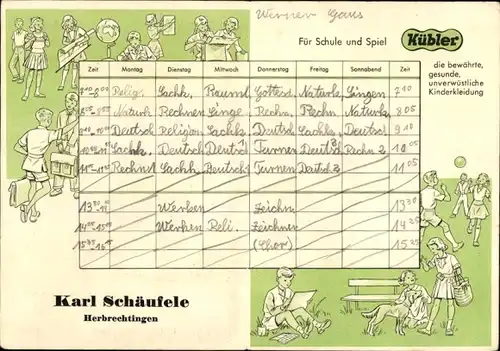 Werner Gans
Für Schule und Spiel Kübler
die bewährte,
gesunde,
unverwüstliche
Kinderkleidung
Zeit Montag Dienstag Mittwoch Donnerstag Freitag Sonnabend Zeit
Relig. Sachk. Rauml. Gottesd. Naturk. Singen 7 10
Naturk. Rechnen Singe Rechn. Rechn Naturk. 8 05
Deutsch Religion Sachk. Deutsch Sachk. Deutsch 9 10
Sachk. Deutsch Deutsch Turnen Deutsch Rechn 2 10 05
Rechn Sachk. Deutsch Turnen Deutsch 2 11 05
Werken Zeichn. 13 30
Werken Reli. Zeichnen 14 25
(Chor) 15 25
Karl Schäufele
Herbrechtingen